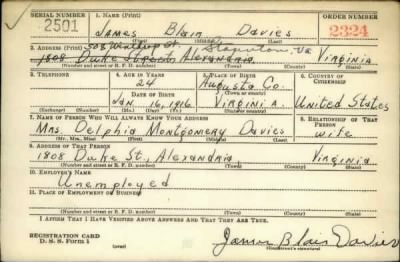 SERIAL NUMBER 1. NAME (Print) ORDER NUMBER
2501 JAMES Blair DAVIES 2324
(First) (Middle) (Last)
2. ADDRESS (Print) 508 St. Staunton, Va
1808 Duke St. Alexandria Virginia
(Number and street or R. F. D. number) (Town) (County) (State)
3. TELEPHONE 4. AGE IN YEARS 5. PLACE OF BIRTH 6. COUNTRY OF CITIZENSHIP
24 Augusta Co.
DATE OF BIRTH (Town or county)
Jan. 16, 1916 Virginia United States
(Exchange) (Number) (Mo.) (Day) (Yr.) (State or country)
7. NAME OF PERSON WHO WILL ALWAYS KNOW YOUR ADDRESS 8. RELATIONSHIP OF THAT PERSON
Mrs. Delphia Montgomery Davies wife
(Mr., Mrs., Miss) (First) (Middle) (Last)
9. ADDRESS OF THAT PERSON
1808 Duke St., Alexandria Virginia
(Number and street or R. F. D. number) (Town) (County) (State)
10. EMPLOYER'S NAME
Unemployed
11. PLACE OF EMPLOYMENT OR BUSINESS
(Number and street or R. F. D. number) (Town) (County) (State)
I AFFIRM THAT I HAVE VERIFIED ABOVE ANSWERS AND THAT THEY ARE TRUE.
REGISTRATION CARD
D. S. S. Form 1 (over) James Blair Davies
(Registrant's signature)